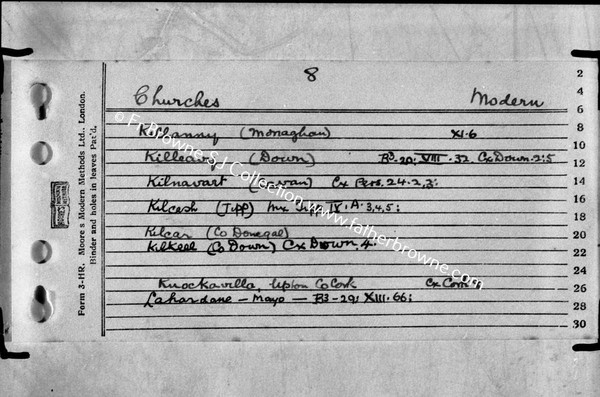 8
Churches Modern
Killanny (Monaghan) XI.6
Killeavy (Down) B3-20; VIII.32. Cx Down.2;5
Kilnavart (Cavan) Cx Pers. 24.2,3;
Kilcash (Tipp) Mx Tipp IX.A.3,4,5;
Kilcar (Co Donegal)
Kilkeel (Co Down) Cx Down.4.
Knockavilla, Upton Co Cork Cx Cork
Lahardane – Mayo – B3-29; XIII.66;
2
4
6
8
10
12
14
16
18
20
22
24
26
28
30
Form 3-HR. Moore's Modern Methods Ltd., London.
Binder and holes in leaves Pat'd.
© Fr Browne S J Collection www.fatherbrowne.com